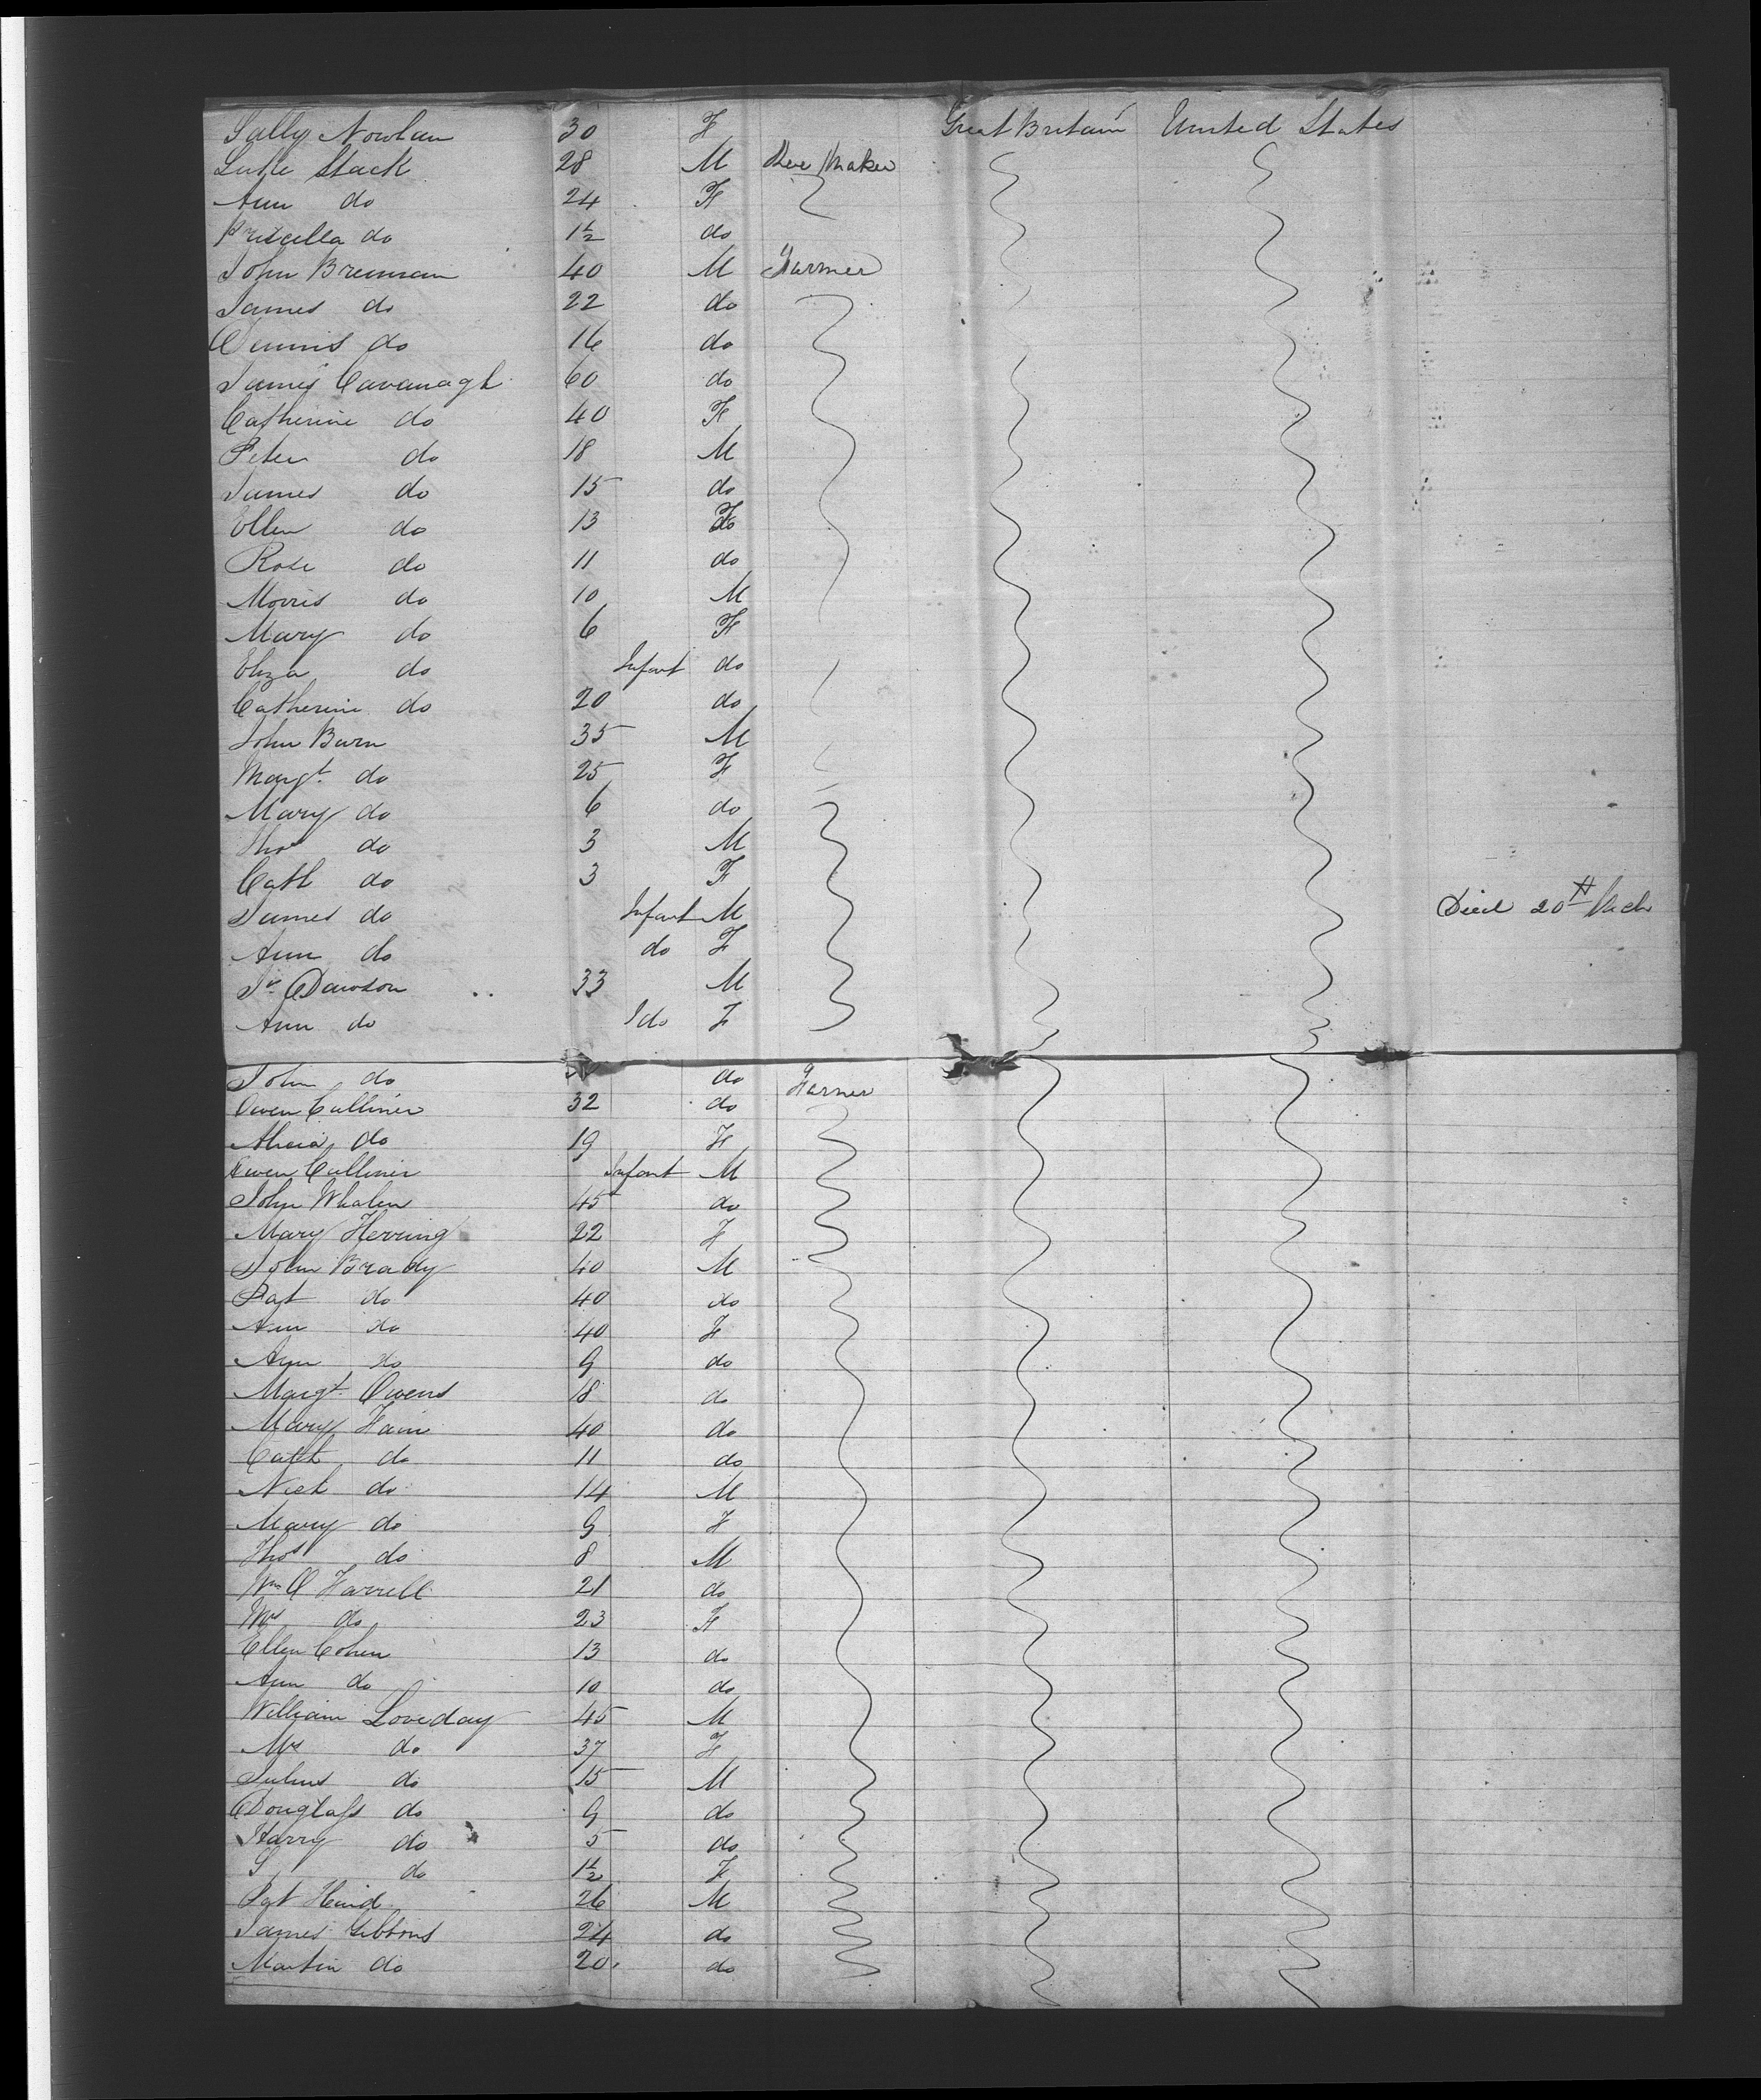 Sally Nowlan 30 F Great Britain United States
Stack 28 M Maker
Ann do 24 F
Priscilla do 1½ do
John Brennan 40 M Farmer
James do 22 do
Dennis do 16 do
James Cavanagh 60 do
Catherine do 40 F
Peter do 18 M
James do 15 do
Ellen do 13 F
Rose do 11 do
Morris do 10 M
Mary do 6 F
Eliza do Infant do
Catherine do 20 do
John Burn 35 M
Margt do 25 F
Mary do 6 do
Thos do 3 M
Cath do 3 F
James do Infant M Died 20th
Ann do do F
Dawson 33 M
Ann do do F
John do do Farmer
Owen Culliner 32 do
Alicia do 19 F
Owen Culliner Infant M
John Whalen 45 do
Mary Herring 22 F
John Brady 40 M
Pat do 40 do
Ann do 40 F
Ann do 9 do
Margt Owens 18 do
Mary 40 do
Cath do 11 do
Nich do 14 M
Mary do 9 F
Thos do 8 M
Wm O Farrell 21 do
Mrs do 23 F
Ellen Cohen 13 do
Ann do 10 do
William Loveday 45 M
Mrs do 37 F
Julius do 15 M
Douglass do 9 do
Harry do 5 do
S do 1½ F
Pat 26 M
James Gibbons 24 do
Martin do 20 do